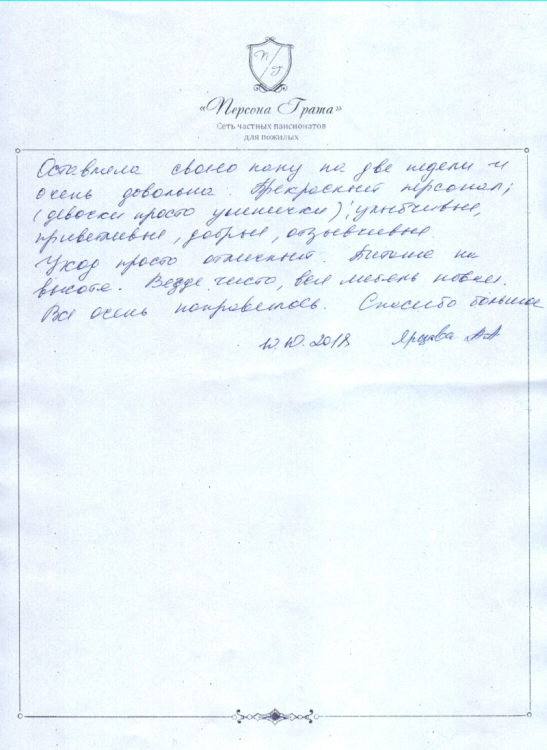 П/Г
«Персона Грата»
Сеть частных пансионатов
для пожилых
Оставляла свою папу на две недели и
очень довольна. Прекрасный персонал;
(девочки просто умнички); улыбчивые,
приветливые, добрые, отзывчивые
Уход просто отличный. Питание на
высоте. Везде чисто, вся мебель новая.
Всё очень понравилось. Спасибо большое
10.10.2018 А.А